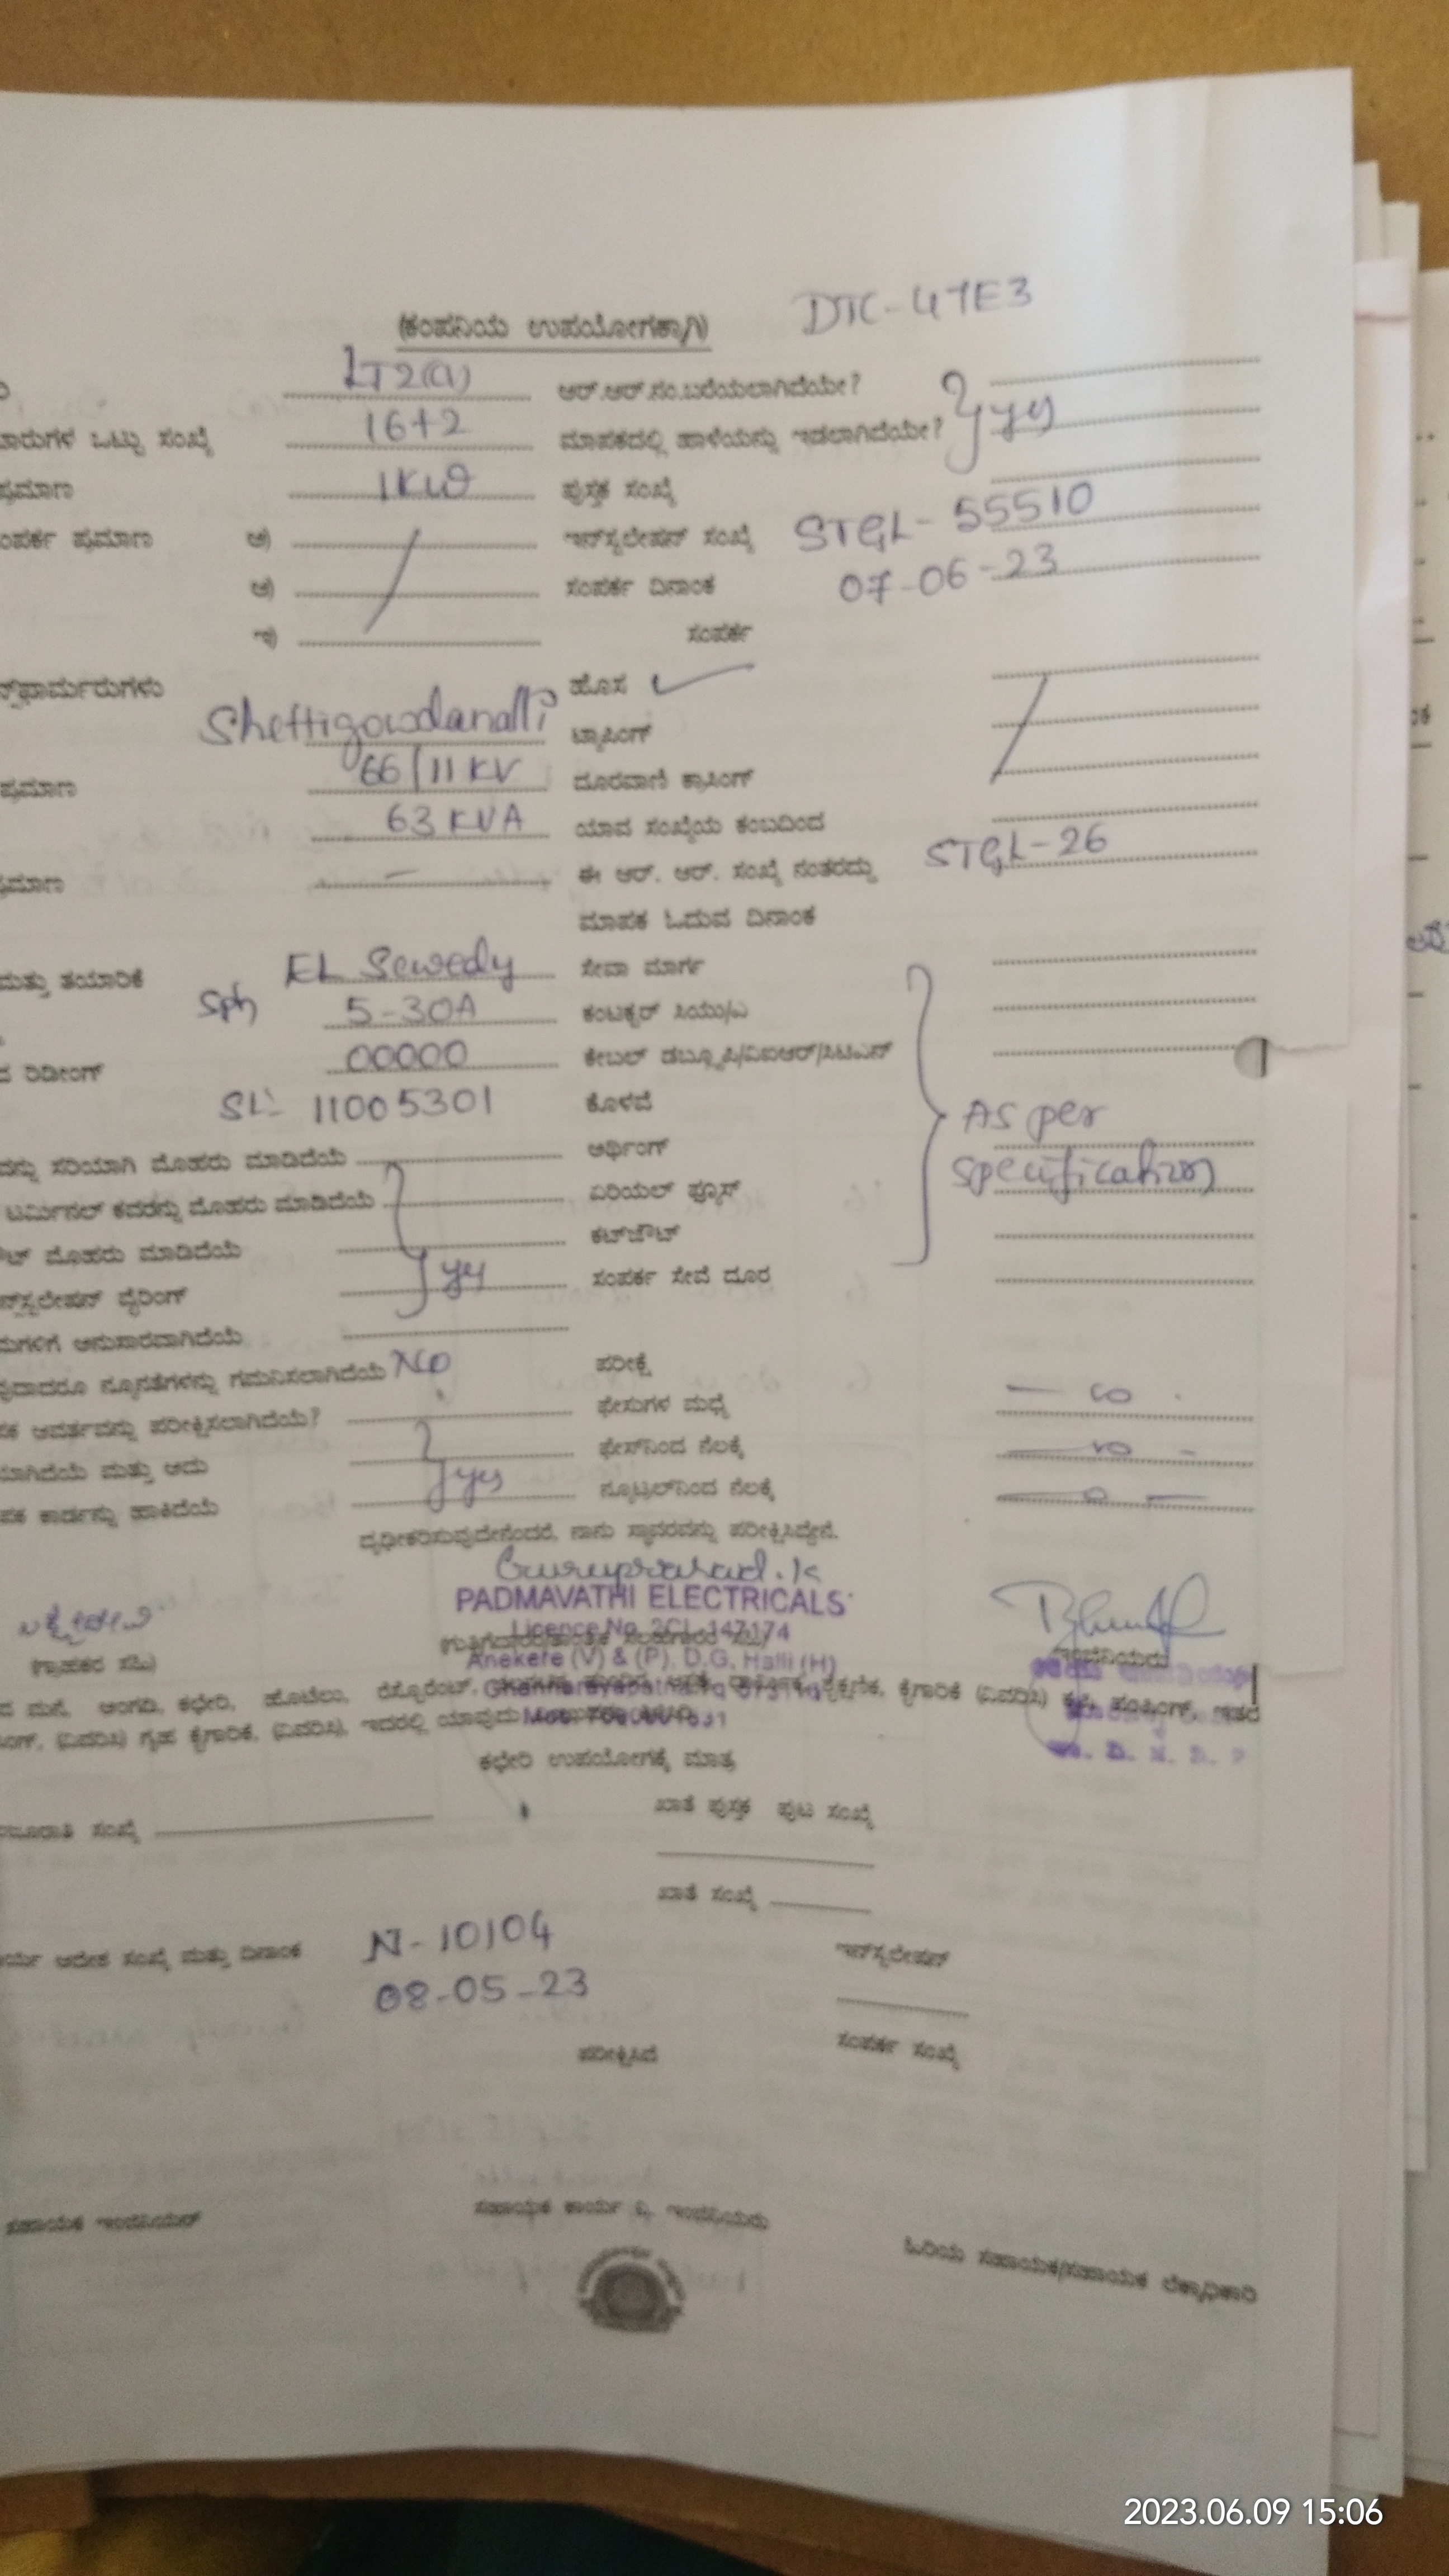 DTC-47E3
(ಕಂಪನಿಯ ಉಪಯೋಗಕ್ಕಾಗಿ)
LT2(a) ಆರ್.ಆರ್.ಸಂ.ಬರೆಯಲಾಗಿದೆಯೇ?
ಒಟ್ಟು ಸಂಖ್ಯೆ 16+2 ಮಾಪಕದಲ್ಲಿ ಹಾಳೆಯನ್ನು ಇಡಲಾಗಿದೆಯೇ? yes
ಪ್ರಮಾಣ 1KW ಪುಸ್ತಕ ಸಂಖ್ಯೆ
ಪ್ರಮಾಣ ಅ) ಇನ್‌ಸ್ಟಲೇಷನ್ ಸಂಖ್ಯೆ STGL-55510
ಆ) ಸಂಪರ್ಕ ದಿನಾಂಕ 07-06-23
ಇ) ಸಂಪರ್ಕ
ಹೊಸ ✓
Shettigowdanalli ಟ್ಯಾಪಿಂಗ್
ಪ್ರಮಾಣ 66/11 KV ದೂರವಾಣಿ ಕ್ರಾಸಿಂಗ್
63 KVA ಯಾವ ಸಂಖ್ಯೆಯ ಕಂಬದಿಂದ
ಈ ಆರ್. ಆರ್. ಸಂಖ್ಯೆ ನಂತರದ್ದು STGL-26
ಮಾಪಕ ಓದುವ ದಿನಾಂಕ
ಮತ್ತು ತಯಾರಿಕೆ EL Sewedy ಸೇವಾ ಮಾರ್ಗ
Sph 5-30A ಕಂಟಕ್ಟರ್ ಸಿಯು/ಎ
ರಿಡೀಂಗ್ 00000 ಕೇಬಲ್ ಡಬ್ಲ್ಯೂಪಿ/ವಿಐಆರ್/ಸಿಟಿಎಸ್
SL: 11005301 ಕೊಳವೆ As per
ಸರಿಯಾಗಿ ಮೊಹರು ಮಾಡಿದೆಯೆ ಅರ್ಥಿಂಗ್ specification
ಟರ್ಮಿನಲ್ ಕವರನ್ನು ಮೊಹರು ಮಾಡಿದೆಯೆ ಏರಿಯಲ್ ಫ್ಯೂಸ್
ಮೊಹರು ಮಾಡಿದೆಯೆ ಕಟ್‌ಔಟ್
ವೈರಿಂಗ್ yes ಸಂಪರ್ಕ ಸೇವೆ ದೂರ
ಅನುಸಾರವಾಗಿದೆಯೆ
ನ್ಯೂನತೆಗಳನ್ನು ಗಮನಿಸಲಾಗಿದೆಯೆ NO ಪರೀಕ್ಷೆ
ಆವರ್ತವನ್ನು ಪರೀಕ್ಷಿಸಲಾಗಿದೆಯೆ? ಫೇಸುಗಳ ಮಧ್ಯೆ ∞
ಮತ್ತು ಅದು ಫೇಸ್‌ನಿಂದ ನೆಲಕ್ಕೆ
ಕಾರ್ಡನ್ನು ಹಾಕಿದೆಯೆ yes ನ್ಯೂಟ್ರಲ್‌ನಿಂದ ನೆಲಕ್ಕೆ
ದೃಢೀಕರಿಸುವುದೇನೆಂದರೆ, ನಾನು ಸ್ಥಾವರವನ್ನು ಪರೀಕ್ಷಿಸಿದ್ದೇನೆ.
Guruprashad.K
PADMAVATHI ELECTRICALS
Licence No. 2CL-147174
Anekere (V) & (P), D.G. Halli (H)
(ಗ್ರಾಹಕರ ಸಹಿ)
ಮನೆ, ಅಂಗಡಿ, ಕಛೇರಿ, ಹೊಟೆಲು, ರೆಸ್ಟೊರೆಂಟ್, ಕೈಗಾರಿಕೆ (ವಿವರಿಸಿ) ಕೃಷಿ, ಪಂಪಿಂಗ್, ಇತರೆ
(ವಿವರಿಸಿ) ಗೃಹ ಕೈಗಾರಿಕೆ, (ವಿವರಿಸಿ), ಇದರಲ್ಲಿ ಯಾವುದು
ಕಛೇರಿ ಉಪಯೋಗಕ್ಕೆ ಮಾತ್ರ
ಸಂಖ್ಯೆ ಖಾತೆ ಪುಸ್ತಕ ಪುಟ ಸಂಖ್ಯೆ
ಖಾತೆ ಸಂಖ್ಯೆ
ಆದೇಶ ಸಂಖ್ಯೆ ಮತ್ತು ದಿನಾಂಕ N-10104 ಇನ್‌ಸ್ಟಲೇಷನ್
08-05-23
ಪರೀಕ್ಷಿಸಿದೆ ಸಂಪರ್ಕ ಸಂಖ್ಯೆ
ಸಹಾಯಕ ಇಂಜಿನಿಯರ್ ಸಹಾಯಕ ಕಾರ್ಯ ನಿ. ಇಂಜಿನಿಯರು ಹಿರಿಯ ಸಹಾಯಕ/ಸಹಾಯಕ ಲೆಕ್ಕಾಧಿಕಾರಿ
2023.06.09 15:06